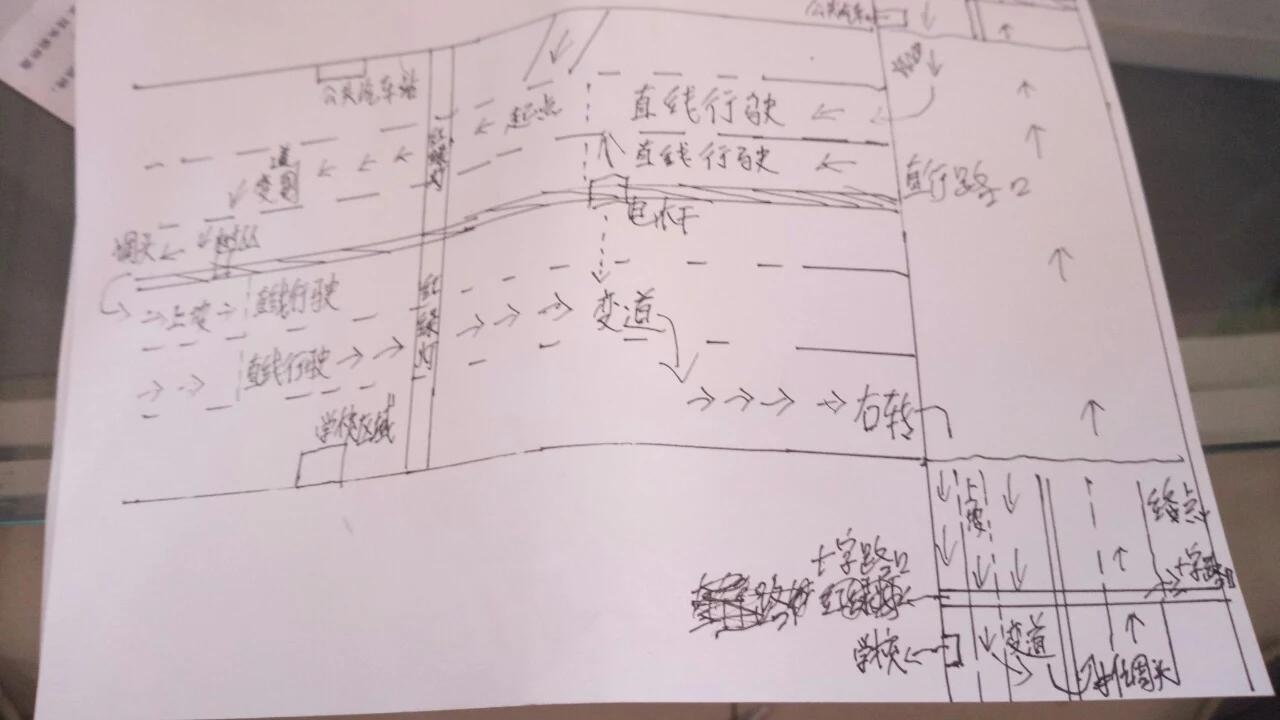 公共汽车站
公共汽车站
起点
直线行驶
红绿灯
变道
直线行驶
直行路口
调头
上坡
直线行驶
红绿灯
变道
直线行驶
右转
学校区域
上坡
终点
十字路口
十字路口
红绿灯
学校
变道
调头